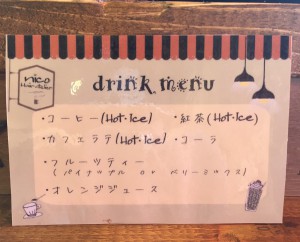 nico
Hair atelier
drink menu
・コーヒー(Hot・Ice) ・紅茶(Hot・Ice)
・カフェラテ(Hot・Ice) ・コーラ
・フルーツティー
(パイナップル or ベリーミックス)
・オレンジジュース